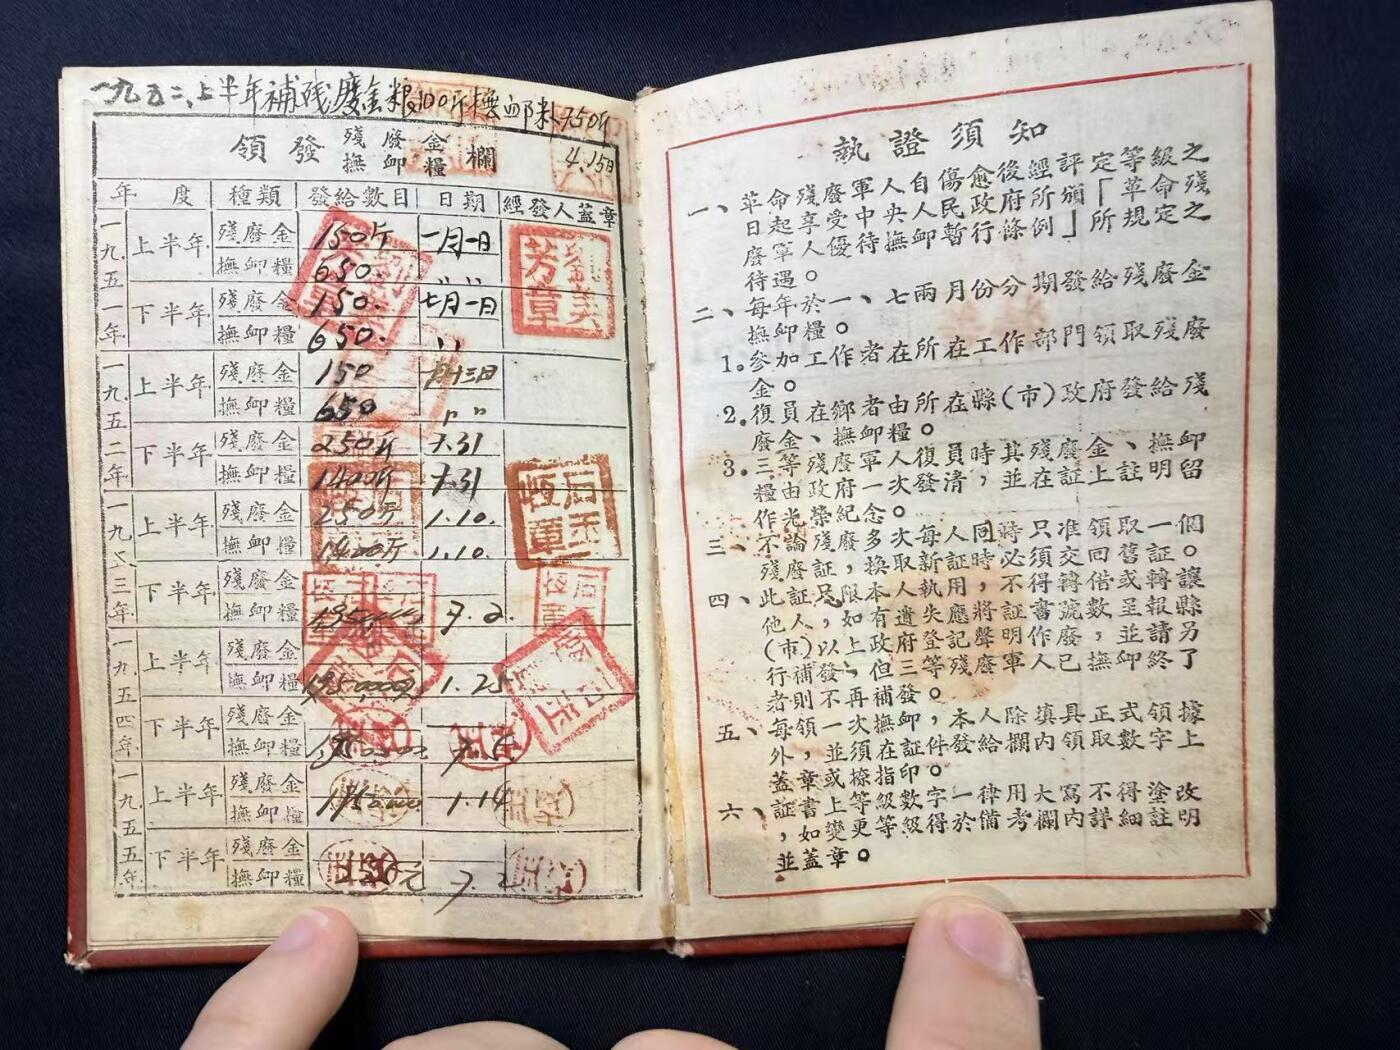 一九五二、上半年補殘廢金粮100斤撫卹粮750斤
4.15日
領發殘廢金撫卹糧欄
年度 種類 發給數目 日期 經發人蓋章
一九五一年 上半年 殘廢金 150斤 一月一日
撫卹糧 650. 〃
下半年 殘廢金 150. 七月一日
撫卹糧 650. 〃
一九五二年 上半年 殘廢金 150
撫卹糧 650 〃
下半年 殘廢金 250斤 7.31
撫卹糧 1400斤 7.31
一九五三年 上半年 殘廢金 250斤 1.10.
撫卹糧 1400斤 1.10.
下半年 殘廢金
撫卹糧 7.2.
一九五四年 上半年 殘廢金
撫卹糧 1950000 1.25
下半年 殘廢金
撫卹糧
一九五五年 上半年 殘廢金
撫卹糧 1.14
下半年 殘廢金
撫卹糧
執證須知
一、革命殘廢軍人自傷愈後經評定等級之
日起享受中央人民政府所頒「革命殘
廢軍人優待撫卹暫行條例」所規定之
待遇。
二、每年於一、七兩月份分期發給殘廢金
撫卹糧。
1。參加工作者在所在工作部門領取殘廢
金。
2。復員在鄉者由所在縣(市)政府發給殘
廢金、撫卹糧。
3。三等殘廢軍人復員時，其殘廢金、撫卹
糧由政府一次發清，並在証上註明留
作光榮紀念。
三、不論殘廢多次每人同時只准領取一個
殘廢証，換取新証時必須交回舊証。
四、此証只限本人執用，不得轉借或轉讓
他人，如有遺失應將証書號數呈報縣
(市)以上政府登記聲明作廢，並請另
行補發，但三等殘廢軍人已撫卹終了
者則不再補發。
五、每領一次撫卹，本人除填具正式領據
外，並須在証件發給欄內領取數字上
蓋章或捺指印。
六、証書上等級數字一律用大寫不得塗改
，如變更等級得於備考欄內詳細註明
並蓋章。